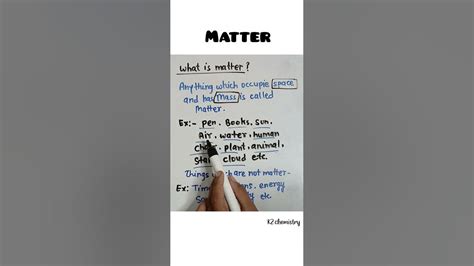 MATTER
What is matter?
Anything which occupie space
and has Mass is called
Matter.
Ex:- Pen, Books, Sun,
Air, water, human
plant, animal,
cloud etc.
Things which are not matter-
Ex: energy
etc
KZ chemistry